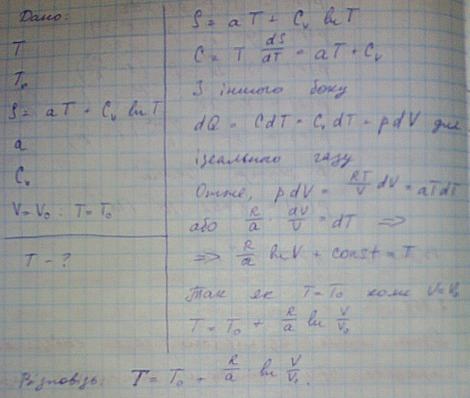 Дано:
T
T₀
S = aT + Cᵥ ln T
a
Cᵥ
V = V₀ : T = T₀
T - ?
S = aT + Cᵥ ln T
C = T dS/dT = aT + Cᵥ
З іншого боку
dQ = CdT = CᵥdT + pdV для
ідеального газу
Отже, pdV = RT/V dV = aTdT
або R/a · dV/V = dT ⇒
⇒ R/a ln V + const = T
Так як T = T₀ коли V = V₀
T = T₀ + R/a ln V/V₀
Відповідь: T = T₀ + R/a ln V/V₀.